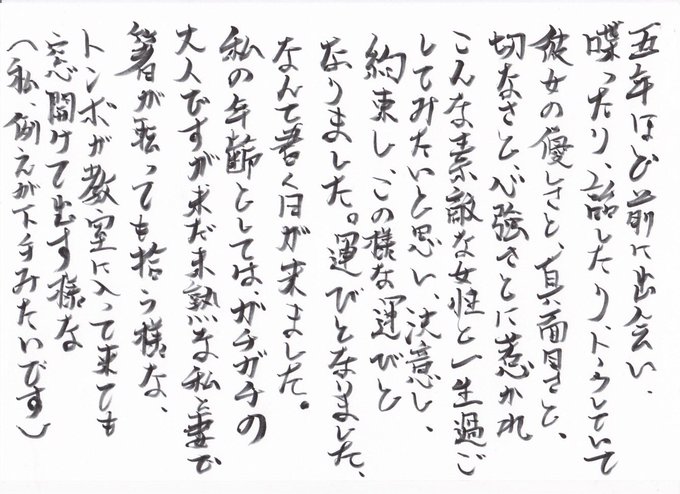 五年ほど前に出会い、
喋ったり、話したり、トークしていて
彼女の優しさと、真面目さと、
切なさと心強さとに惹かれ
こんな素敵な女性と一生過ご
してみたいと思い、決意し、
約束し、この様な運びと
なりました。運びとなりました、
なんて書く日が来ました。
私の年齢としては、ガチガチの
大人ですが未だ未熟な私と妻で
箸が転っても拾う様な、
トンボが教室に入って来ても
窓開けて出す様な
（私、例えが下手みたいです）